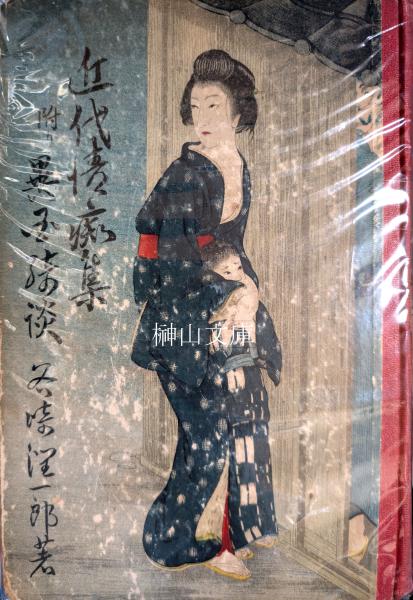 近代情痴集
附り 異国綺談
谷崎潤一郎著
榊山文庫